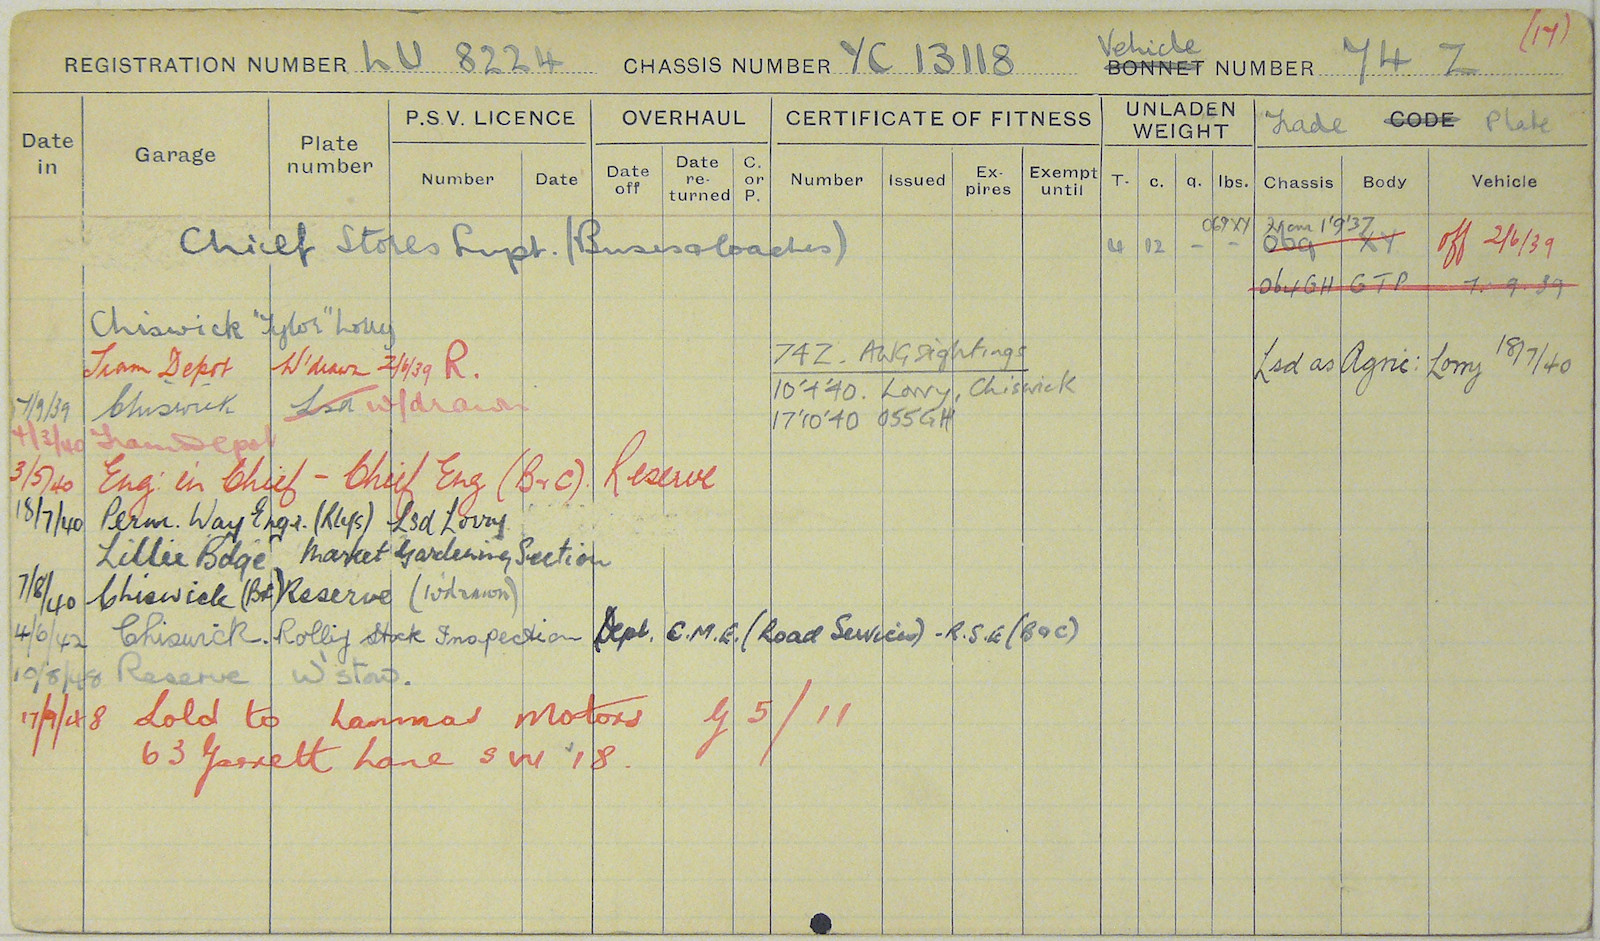 (17)
REGISTRATION NUMBER LU 8224 CHASSIS NUMBER YC 13118 Vehicle BONNET NUMBER 74 Z
Date in Garage Plate number P.S.V. LICENCE OVERHAUL CERTIFICATE OF FITNESS UNLADEN WEIGHT Trade CODE Plate
Number Date Date off Date re-turned C. or P. Number Issued Ex-pires Exempt until T. c. q. lbs. Chassis Body Vehicle
069 XY 1'9'37
Chief Stores Supt. (Buses & Coaches) 4 12 - - 069 XY off 2/6/39
064GH GTP 7. 9. 39
Chiswick "Tylor" Lorry
Tram Depot W'drawn 2/6/39 R. 74Z. AWG sightings Lsd as Agric: Lorry 18/7/40
7/9/39 Chiswick Lsd w/drawn 10'4'40. Lorry, Chiswick
17'10'40 055GH
4/3/40 Tram Depot
3/5/40 Eng: in Chief - Chief Eng (B & C). Reserve
18/7/40 Perm. Way Engr. (Rlys) Lsd Lorry
Lillie Bdge Market Gardening Section
7/8/40 Chiswick (B&C) Reserve (W'drawn)
4/6/42 Chiswick. Rollig Stock Inspection Dept. C.M.E. (Road Services) - R.S.E (B & C)
10/8/48 Reserve W'stow.
17/9/48 Sold to Lammas Motors G 5/11
63 Garrett Lane S W 18.